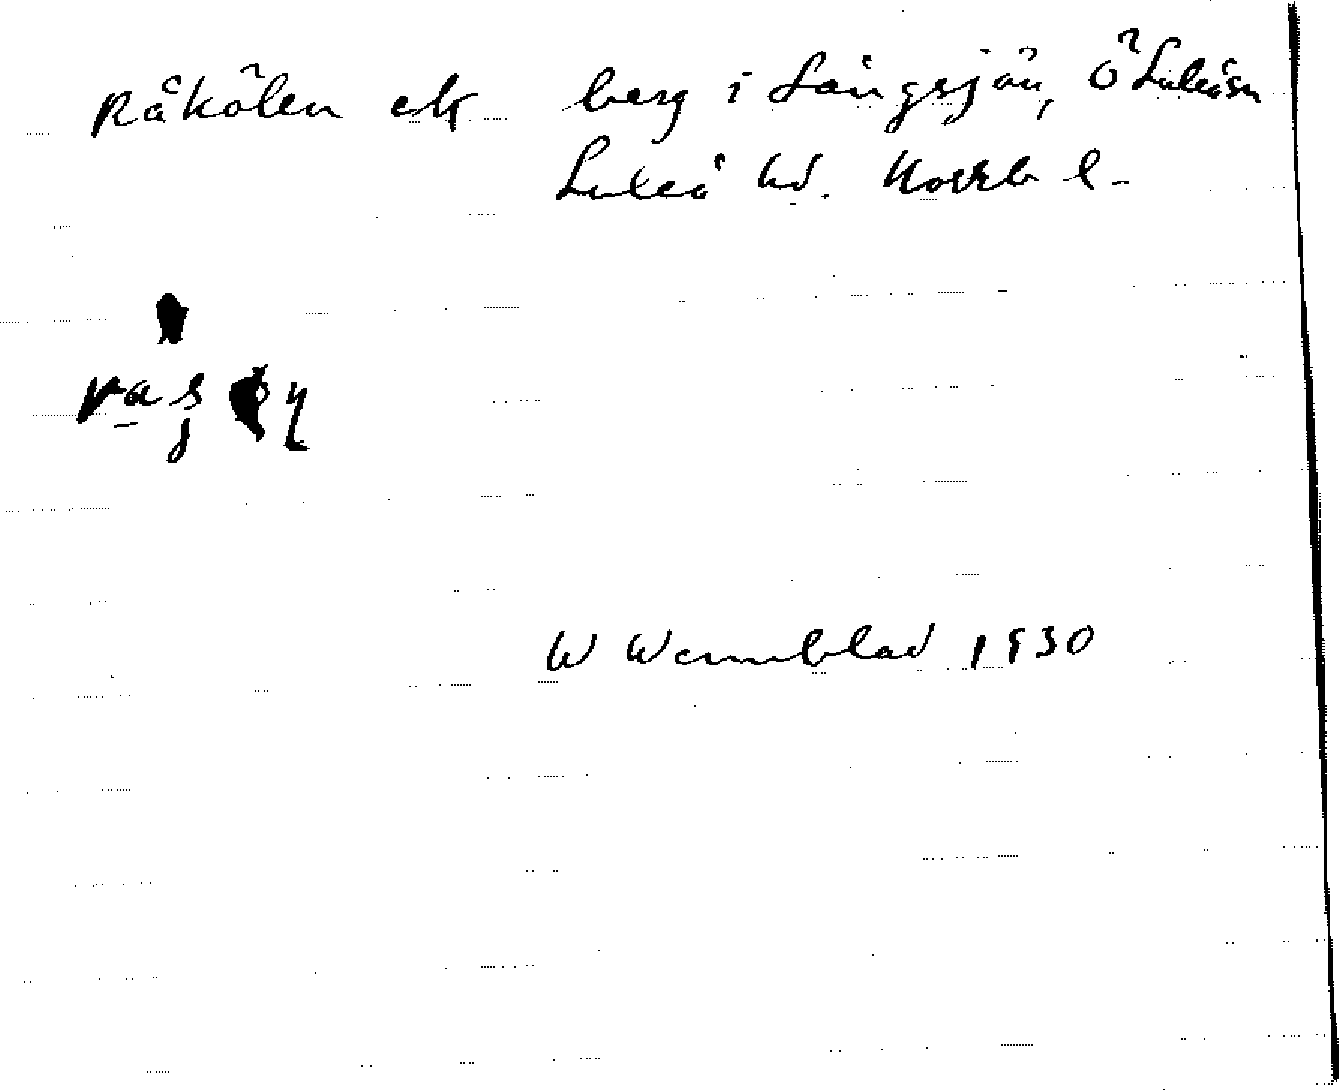 Råkölen ek berg i Långsjön, Ö Luleå sn
Luleå hd. Norrb l-
W Wennblad 1930